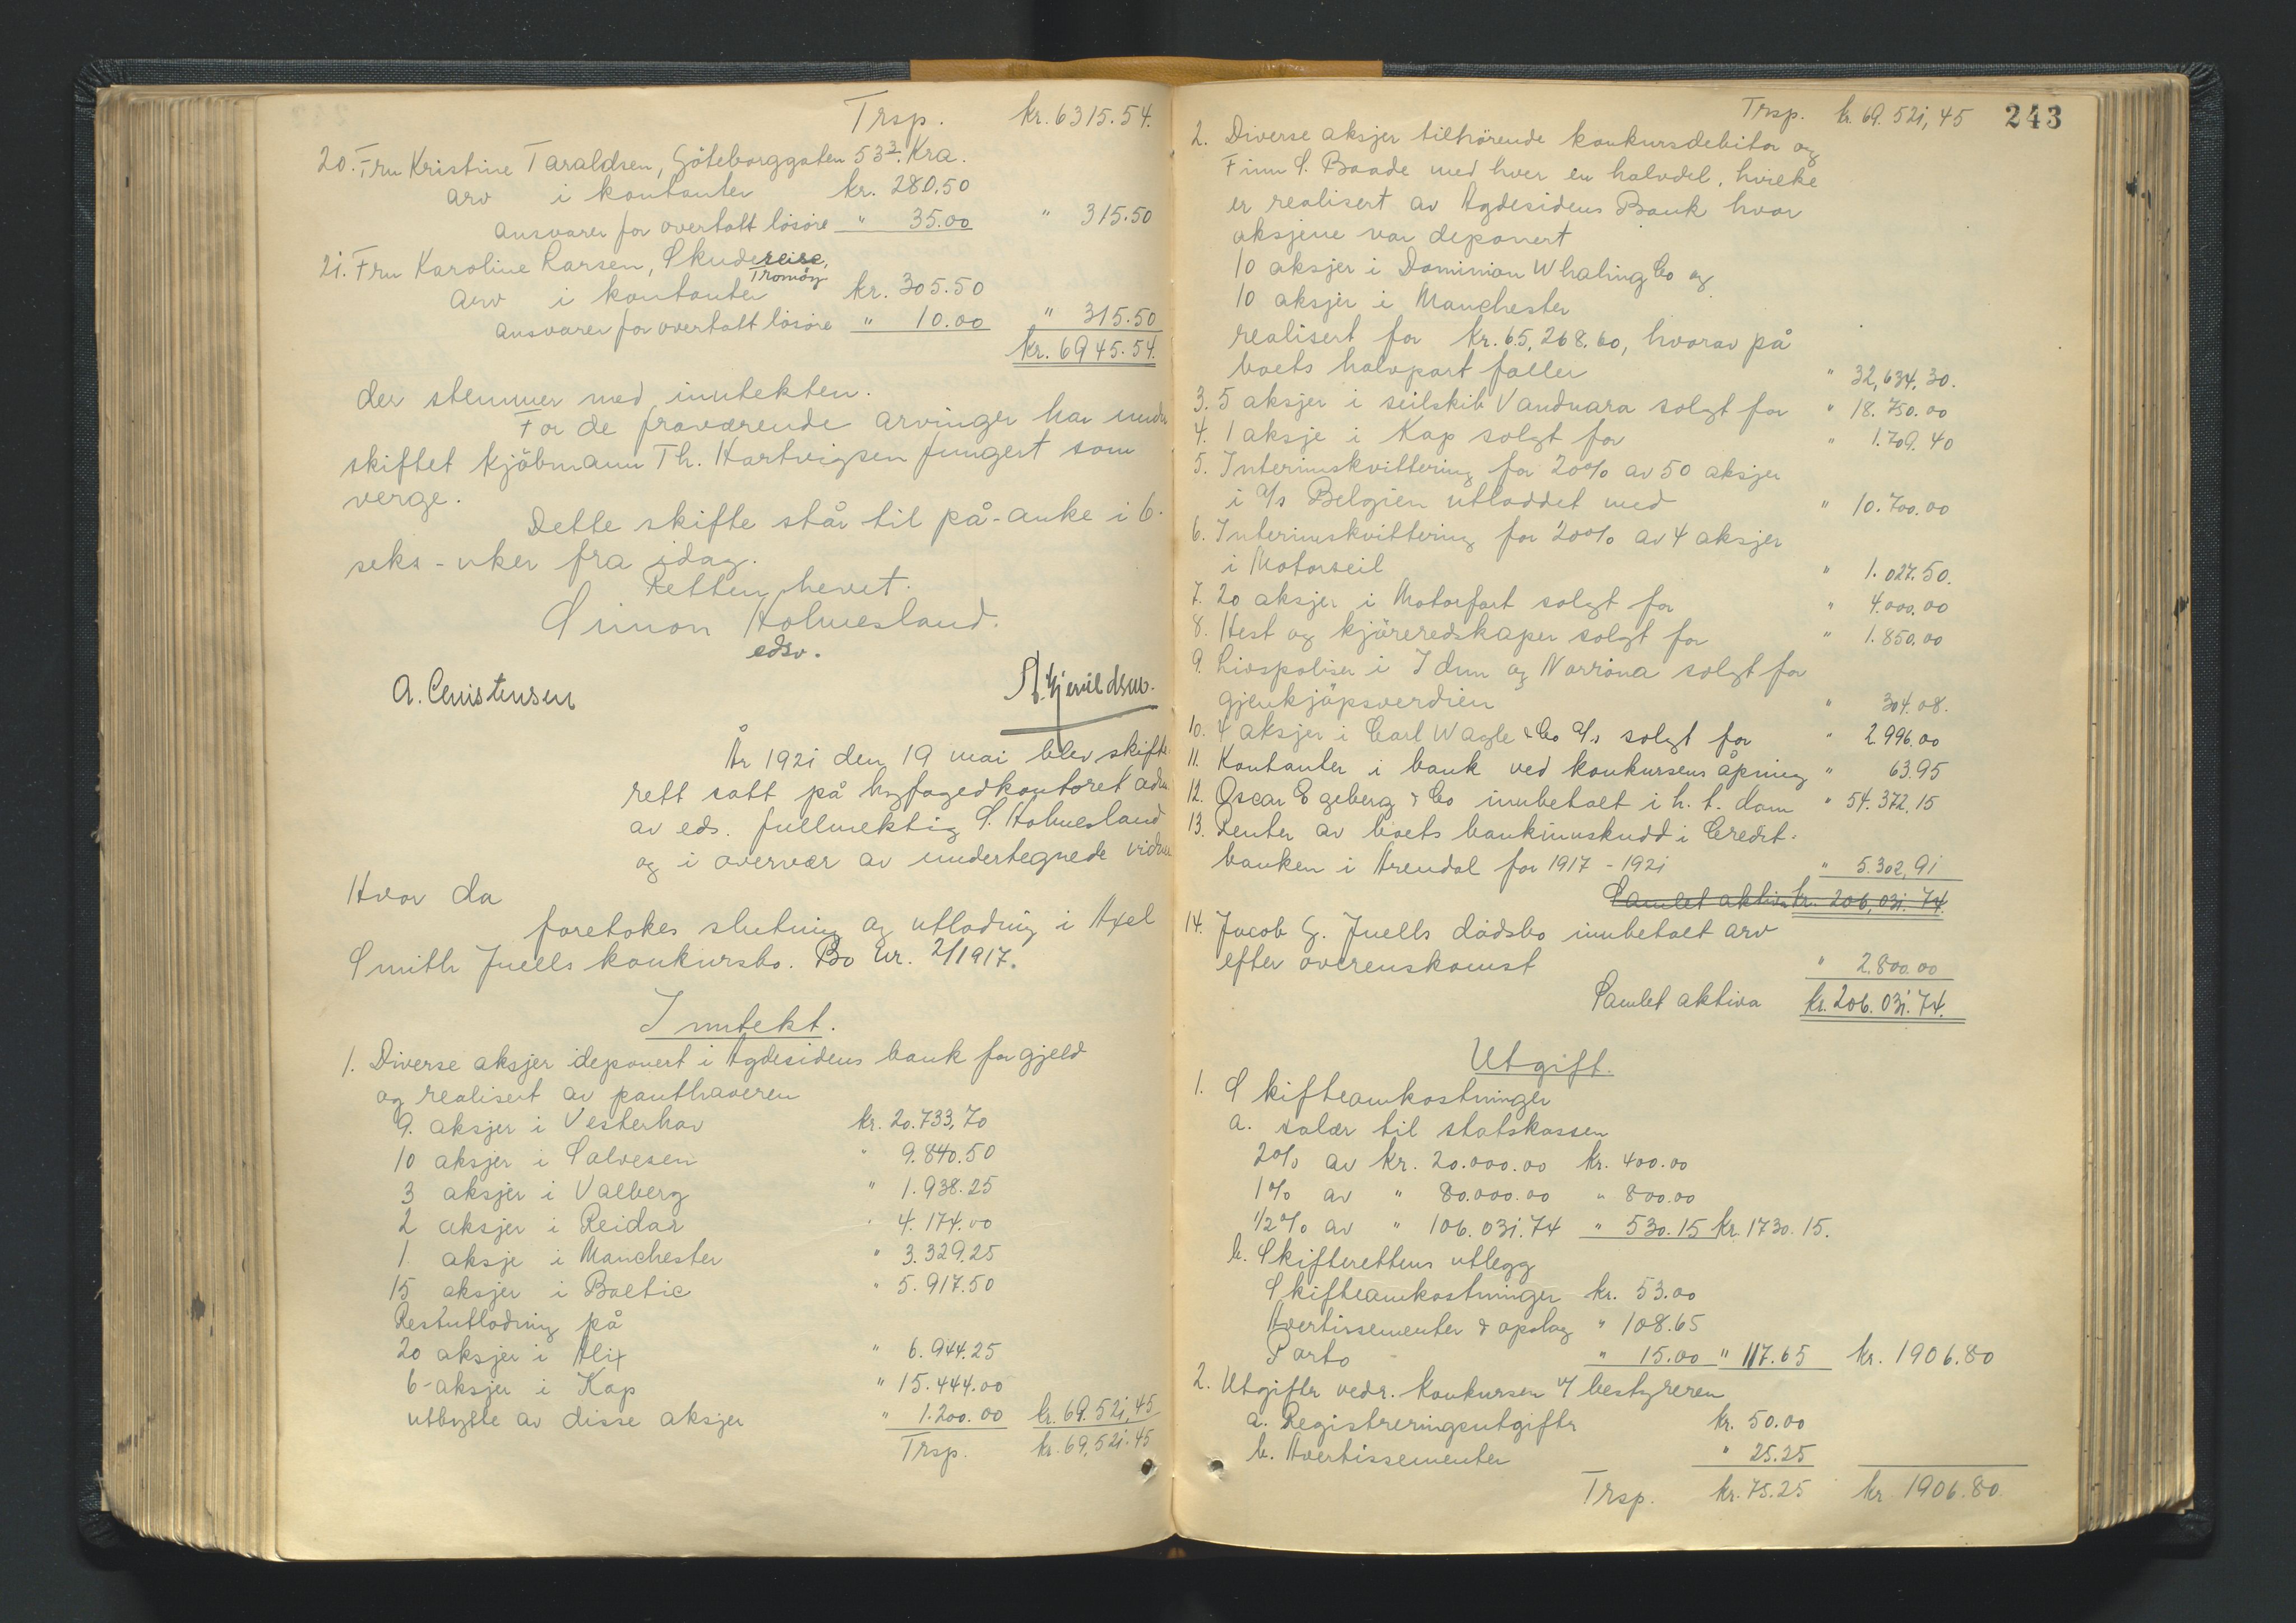 Trsp. kr. 6315.54.
20. Fru Kristine Taraldsen, Göteborggaten 53³. Kra.
arv i kontanter kr. 280.50
ansvarer for overtatt lösöre " 35.00 " 315.50
21. Fru Karoline Larsen, Skudereise,
Tromöy
arv i kontanter kr. 305.50
ansvarer for overtatt lösöre " 10.00 " 315.50
kr. 6945.54.
der stemmer med inntekten.
For de fraværende arvinger har under
skiftet kjöbmann Th. Hartvigsen fungert som
verge.
Dette skifte står til på-anke i 6-
seks-uker fra idag.
Retten hevet.
Simon Holmesland.
edsv.
A. Christensen
År 1921 den 19 mai blev skifte
rett satt på byfogedkontoret adm.
av eds. fullmektig S. Holmesland
og i overvær av undertegnede vidner
Hvor da
foretokes slutning og utlodning i Axel
Smith Juells konkursbo. Bo nr. 2/1917.
Inntekt.
1. Diverse aksjer deponert i Agdesidens bank for gjeld
og realisert av panthaveren
9. aksjer i Vesterhav kr. 20.733,70
10 aksjer i Salvesen " 9.840.50
3 aksjer i Valberg " 1.938.25
2 aksjer i Reidar " 4.174.00
1 aksje i Manchester " 3.329.25
15 aksjer i Baltic " 5.917.50
Restutlodning på
20 aksjer i Alix " 6.944.25
6-aksjer i Kap " 15.444.00
utbytte av disse aksjer " 1.200.00 kr. 69.521,45
Trsp. kr. 69.521.45
Trsp. kr. 69.521,45 243
2. Diverse aksjer tilhörende konkursdebitor og
Finn S. Baade med hver en halvdel, hvilke
er realisert av Agdesidens Bank hvor
aksjene var deponert
10 aksjer i Dominion Whaling Co og
10 aksjer i Manchester
realisert for kr. 65,268.60, hvorav på
boets halvpart faller " 32,634.30.
3. 5 aksjer i seilskib Vanduara solgt for " 18.750.00
4. 1 aksje i Kap solgt for " 1.709.40
5. Interimskvittering for 20% av 50 aksjer
i A/s Belgien utloddet med " 10.700.00
6. Interimskvittering for 20% av 4 aksjer
i Motorseil " 1.027.50.
7. 20 aksjer i Motorfart solgt for " 4.000.00
8. Hest og kjöreredskaper solgt for " 1.850.00
9. Livspoliser i Idun og Norröna solgt for
gjenkjöpsverdien " 304.08.
10. 4 aksjer i Carl Wagle & Co A/s solgt for " 2.996.00
11. Kontanter i bank ved konkursens åpning " 63.95
12. Oscar Egeberg & Co innbetalt i h. t. dom " 54.372.15
13. Renter av boets bankinnskudd i Credit-
banken i Arendal for 1917-1921 " 5.302,91
Samlet aktiva kr. 206,031.74.
14. Jacob G. Juells dödsbo innbetalt arv
efter overenskomst " 2.800.00
Samlet aktiva kr. 206.031.74.
Utgift.
1. Skifteomkostninger
a. salær til statskassen
2% av kr. 20.000.00 kr. 400.00
1% av " 80.000.00 " 800.00
1/2% av " 106.031.74 " 530.15 kr. 1730.15.
b. Skifterettens utlegg
Skifteomkostninger kr. 53.00
Avertissementer & opslag " 108.65
Porto " 15.00 " 117.65 kr. 1906.80
2. Utgifter vedr. konkursen v/ bestyreren
a. Registreringsutgifter kr. 50.00
b. Avertissementer " 25.25
Trsp. kr. 75.25 kr 1906.80